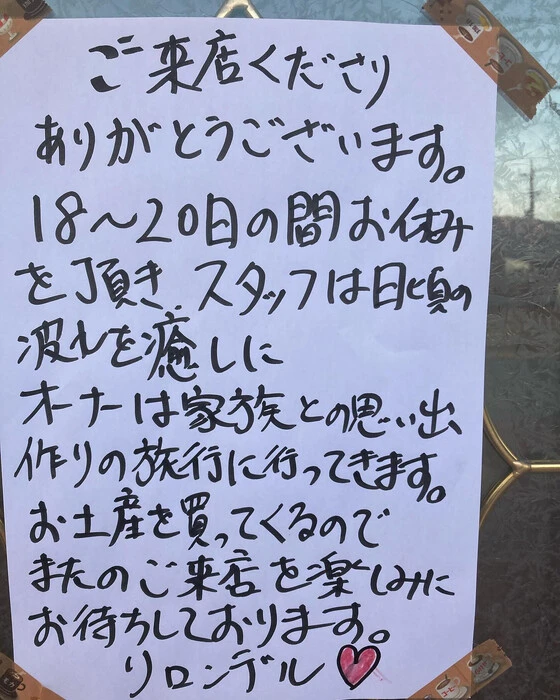 ご来店くださり
ありがとうございます。
18〜20日の間お休み
を頂き、スタッフは日頃の
波れを癒しに
オーナーは家族との思い出
作りの旅行に行ってきます。
お土産を買ってくるので
またのご来店を楽しみに
お待ちしております。
リロンデル♡